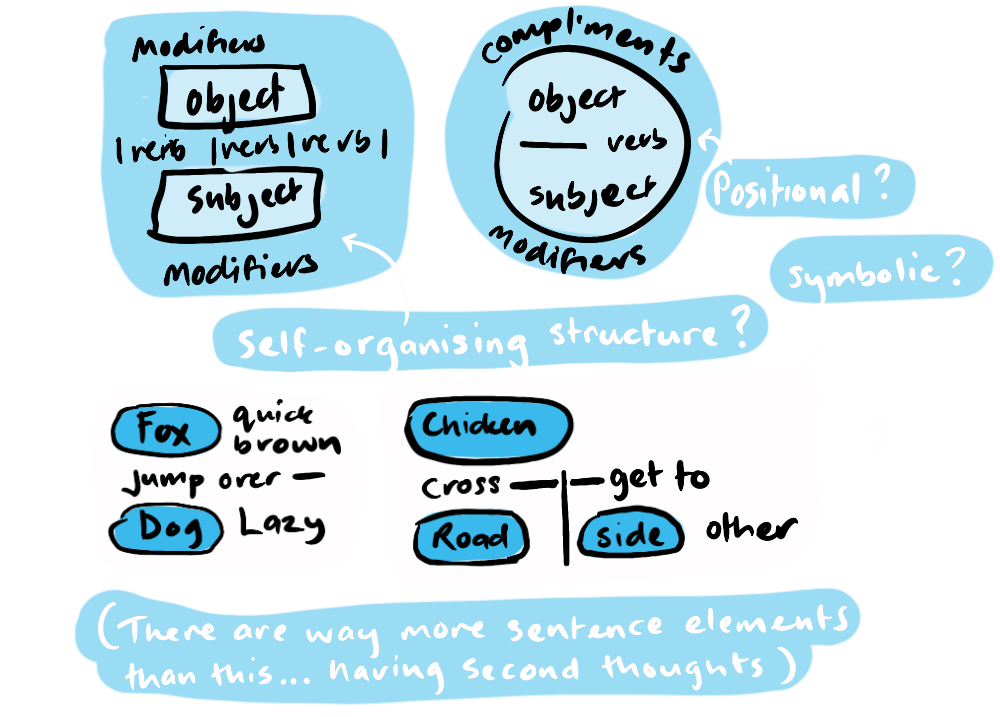 Modifiers
object
|verb |verb|verb|
Subject
Modifiers
compliments
object
verb
subject
modifiers
Positional?
symbolic?
Self-organising structure?
Fox quick
brown
Jump over
Dog Lazy
Chicken
cross get to
Road side other
(There are way more sentence elements
than this... having second thoughts)